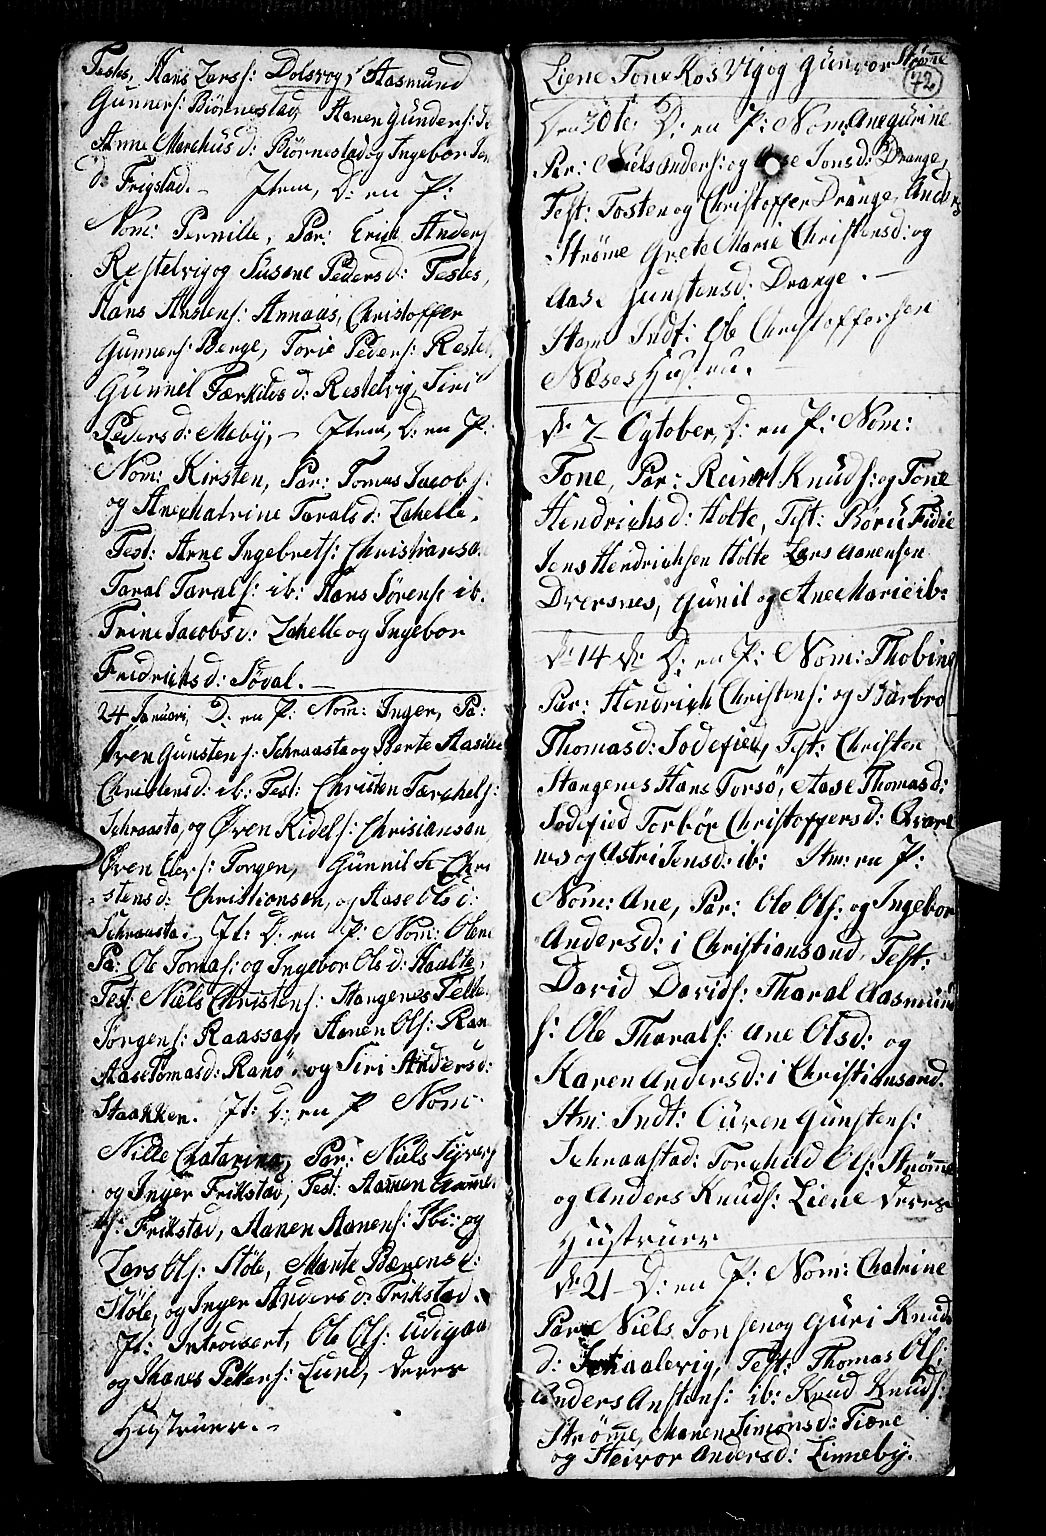 Testes, Hans Lars: Dolsvog, Aasmund
Gunners: Biørnestad, Aanen Gunders:
Anne Marchus d: Biørnestad og Ingebor
d: Frigstad. – Item, D: en P:
Nom: Pernille, Par: Erich Anders
Restelvig og Susane Peders d: Testes,
Hans Anstens: Annaas, Christoffer
Gunners: Berge, Torie Peders: Restel
Gunnil Tærkilds d: Restelvig, Siri
Peders d: Meby, – Item, D: en P:
Nom: Kirsten, Par: Tomas Jacobs:
og Anechatrine Tarals d: Zahelle.
Test: Arne Ingebrets: Christiansa
Taral Tarals: ib: Hans Sørens: ib.
Trine Jacobs d: Zahelle og Ingebor
Fredrichs d: Søval. –
24 Januari, D: en P: Nom: Inger, Pa:
Øven Gunstens: Schraasta og Berte Aasille
Christens d: ib: Test: Christen Tærchels:
Schraasta, og Øven Kidels: Chrisiansan,
Øven Elevs: Torgen, Gunnil Chri
stens d: Christiansan, og Aase Ols d:
Schraasta: It: D: en P: Nom: Olene
Pa: Ole Tomas: og Ingebor Ols d: Haalte,
Test: Niels Christens: Stangenes Telle
Jørgens: Raassag, Aanen Ols: Ran
Aase Tomas d: Ranø, og Siri Anders d:
Staakken. It: D: en P Nom:
Nille Chatarina, Par: Niels Siyvers
og Inger Frikstad, Test: Aanen
s: Frikstad, Aanen Aanens: Ibi: og
Lars Ols: Støle, Marite Bærens d:
Støle, og Inger Anders d: Frikstad.
It: Introdsert, Ole Ols: Udigaar
og Hanes Pettens: Lund, deres
Hustruer. –
Liene Tone Kos Vig og Gunvor Strøme
72
Den 30te D: en P: Nom: Ane gurine
Par: Niels Anders: og Aase Jons d: Drange,
Test: Tosten og Christoffer Drange, Anders
Strøme Grete Marie Christens d: og
Aase Gunstens d: Drange. –
Item Indt: Ole Christoffersen
Næses Hustru.
D: 7 Ogtober, D: en P: Nom:
Tone, Par: Reinert Knuds: og Tone
Hendrichs d: Holte, Test: Børu Fidie
Jens Hendrichsen Holte Lars Aanensen
Dversnes, Gunil og Ane Marie ib:
D: 14 de D: en P: Nom: Thobine
Par: Hendrich Christens: og Barbro
Thomas d: Sodefied, Test: Christen
Stangenes Hans Torsø, Aase Thomas d:
Sodefied Torbør Christoffers d: Qvare
nes og Astri Jens d: ib: Itm: en P:
Nom: Ane, Par: Ole Ols: og Ingebor
Anders d: i Christiansand, Test:
David Davids: Tharal Aasmund
s: Ole Tharals: Ane Ols d: og
Karen Anders d: i Christiansand.
Itm: Indt: Oüven Gunstens:
Schraastad: Torchild Ols: Strømme
og Anders Knuds: Liene deres
Hustruer
D: 21 – D: en P: Nom: Chatrine
Par: Niels Jonsen og Guri Knuds
d: Schaalevig, Test: Thomas Ols:
Anders Anstens: ib: Knud Knuds:
Strømme, Maren Simons d: Tiøne
og Steivor Anders d: Linneby.